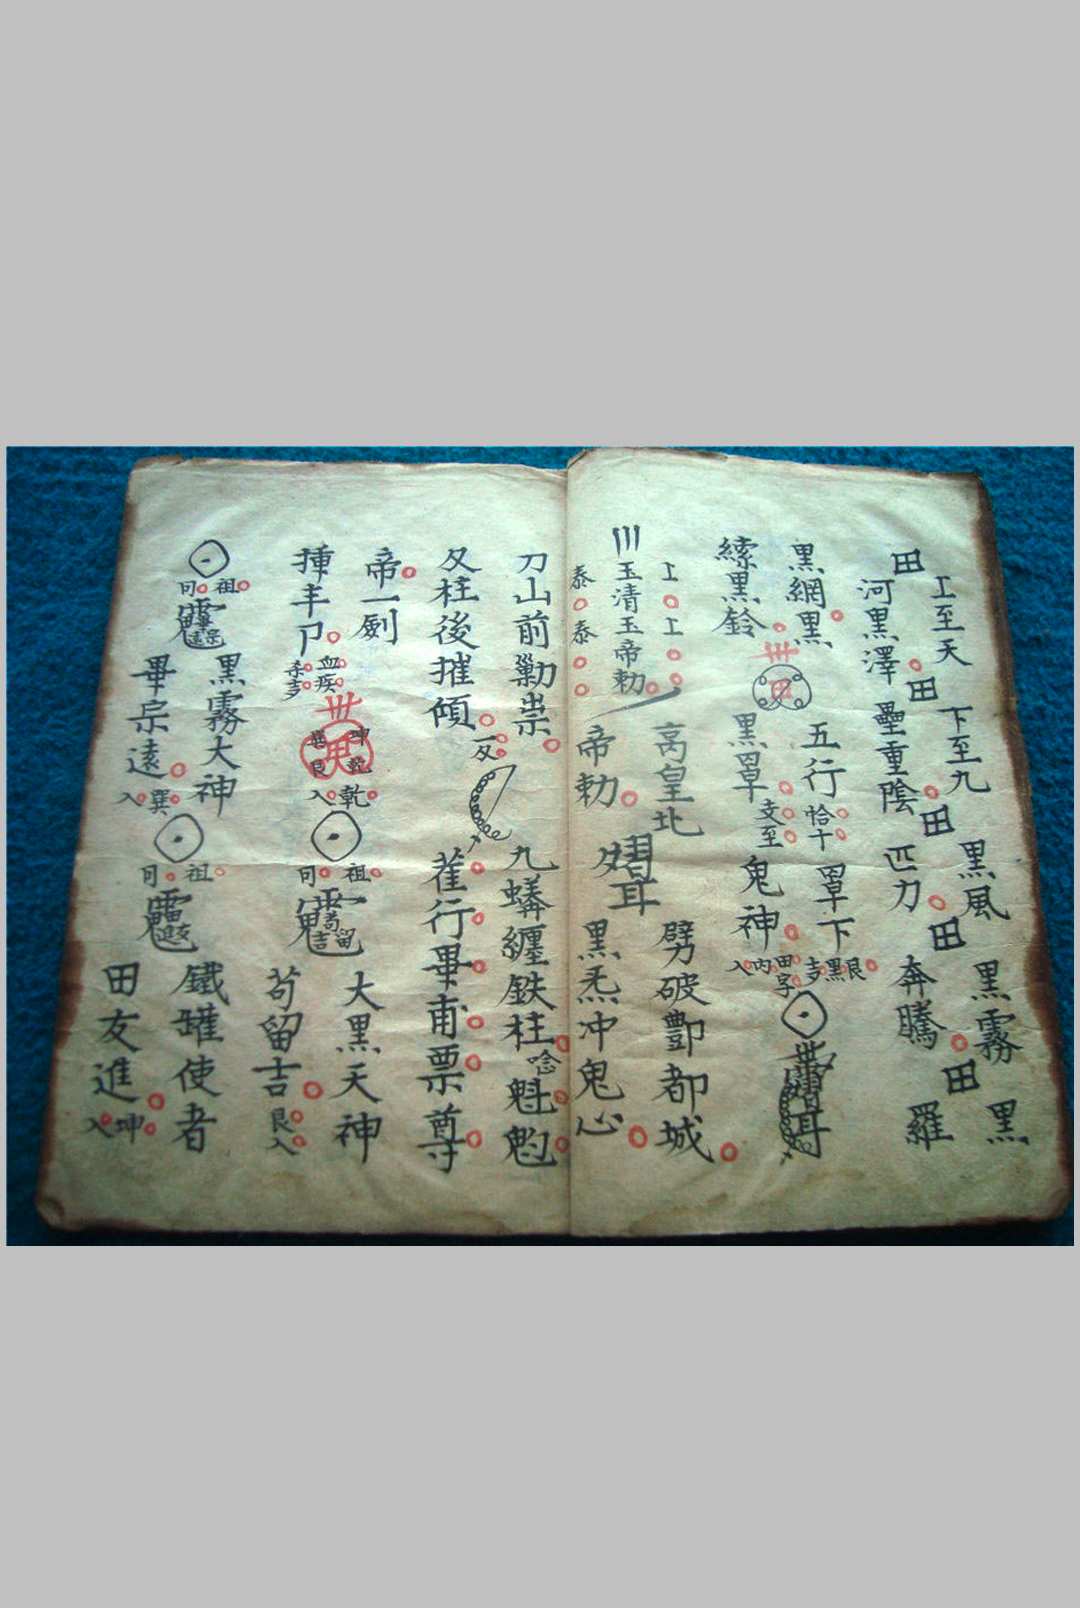 田
上至天
河黑澤
田
下至九
壘重陰
田
黑風
匹力
田
黑霧
奔騰
田
黑
羅
黑網黑
縤黑鈴
五行
黑罩
恰十
支至
罩下
鬼神
艮黑多
田字内入
上上
玉清玉帝勅
泰泰
高皇北
帝勅
劈破酆都城
黑炁冲鬼心
刀山前勦祟
夂柱後摧傾
一夂
九蟒纏鉄柱
唸
魁魡
雈行畢甫票尊
帝一劍
揰丰卩
血疾
坤乾
巽艮
乾入
祖司
大黑天神
苟留吉
艮入
祖司
黑霧大神
畢宗遠
巽入
祖司
鐵䥯使者
田友進
坤入